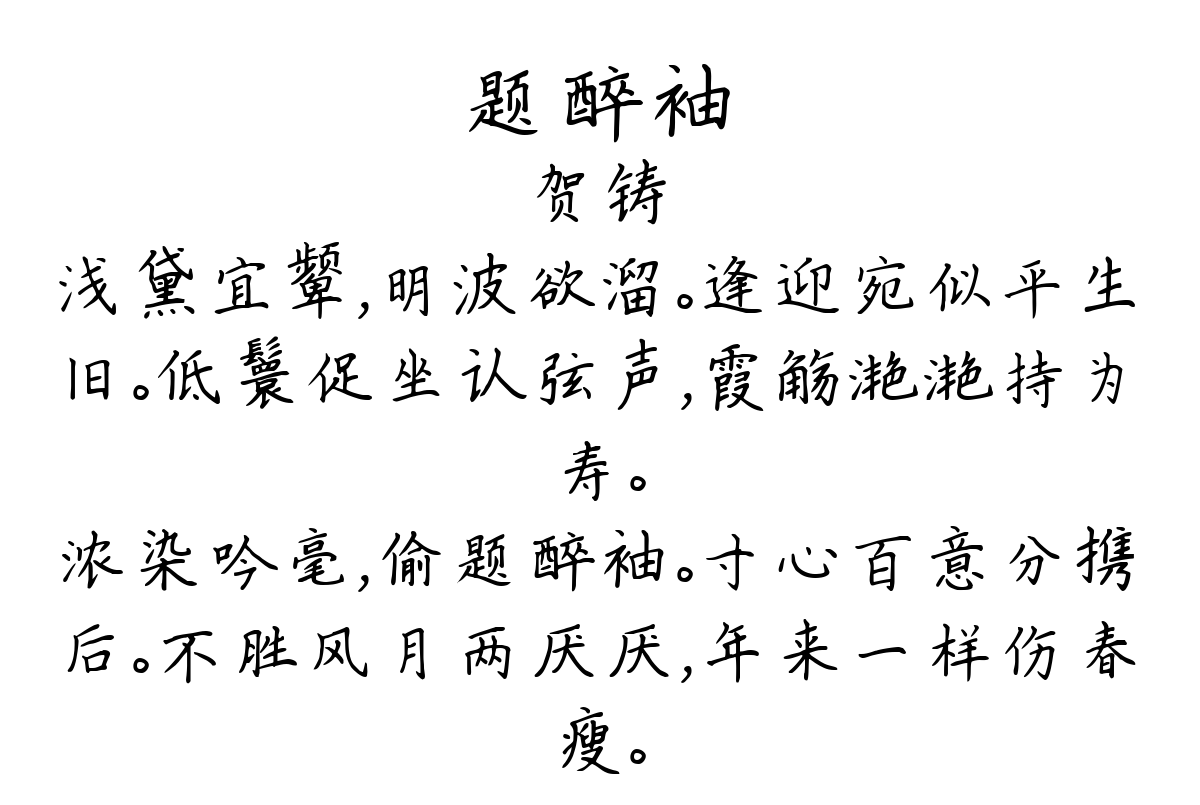 题醉袖
贺铸
浅黛宜颦,明波欲溜。逢迎宛似平生
旧。低鬟促坐认弦声,霞觞滟滟持为
寿。
浓染吟毫,偷题醉袖。寸心百意分携
后。不胜风月两厌厌,年来一样伤春
瘦。